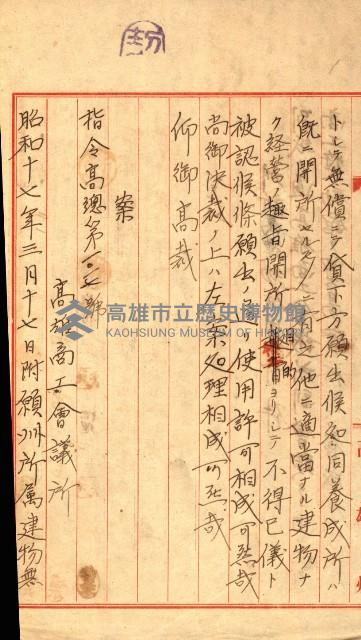 トシテ無償ニテ貸下方願出候処同養成所ハ
既ニ開所セルモノニ有之他ニ適當ナル建物ナ
ク経営ノ趣旨開所ノ目的ヨリシテ不得已儀ト
被認候條願出ノ通リ使用許可相成可然哉
尚御決裁ノ上ハ左案処理相成可然哉
仰御高裁
案
指令高總第 號
高雄商工會議所
昭和十七年三月十七日附願州所属建物無
高雄市立歷史博物館
KAOHSIUNG MUSEUM OF HISTORY